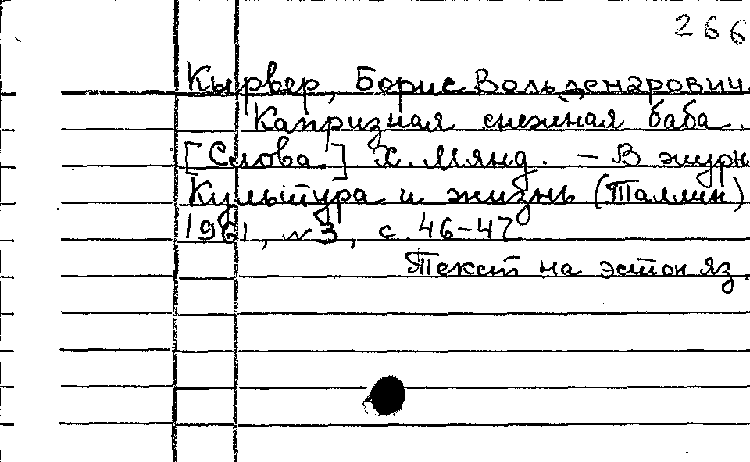 266
Кырвер, Борис Вольдемарович.
Капризная снежная баба.
[Слова] Х. Мянд. - В журн
Культура и жизнь (Таллин)
1961, №3, с. 46-47
Текст на эстон яз.